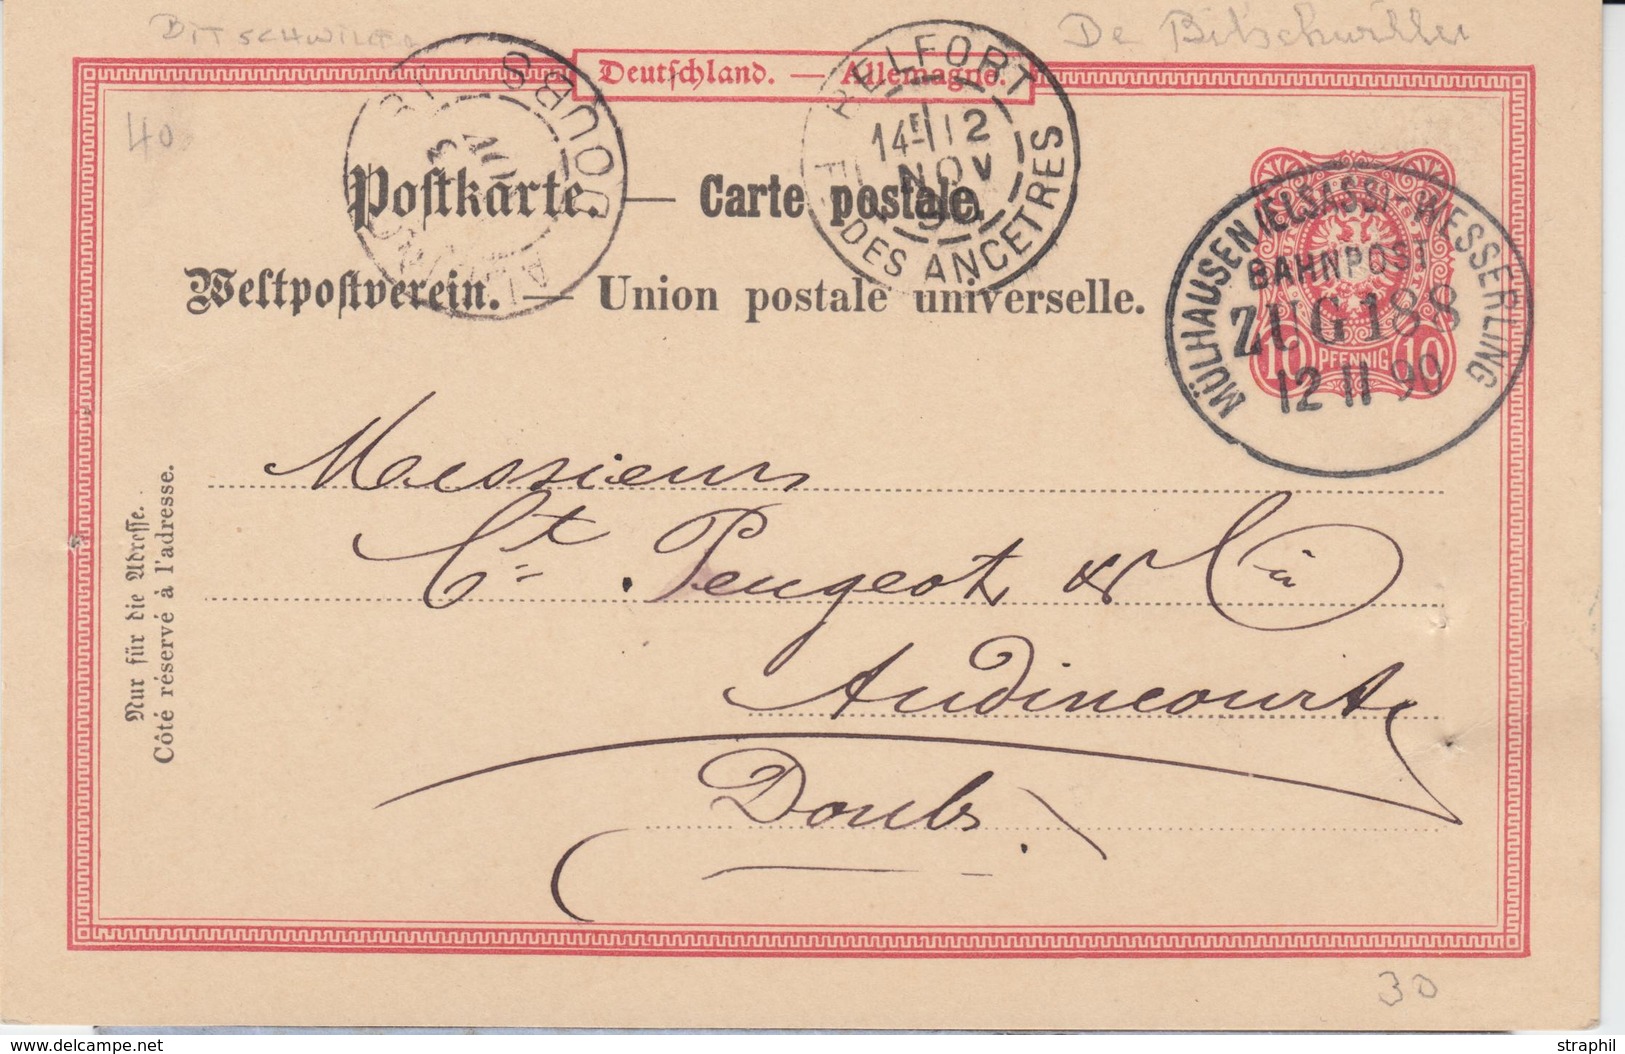 BITSCHWILLER
De Bitschwiller
40
Deutschland. — Allemagne.
DOUBS
BELFORT
14E 12
NOV
90
F. DES ANCETRES
Postkarte. — Carte postale.
Weltpostverein. — Union postale universelle.
MÜLHAUSEN (ELSASS)-WESSERLING
BAHNPOST
ZUG 188
12 11 90
10 PFENNIG 10
Messieurs
Ct. Peugeot & Cie à
Audincourt
Doubs.
Nur für die Adresse.
Côté réservé à l'adresse.
30
delcampe.net
straphil